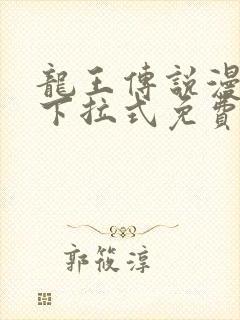 龍王傳說漫
下拉式免費
郭筱淳